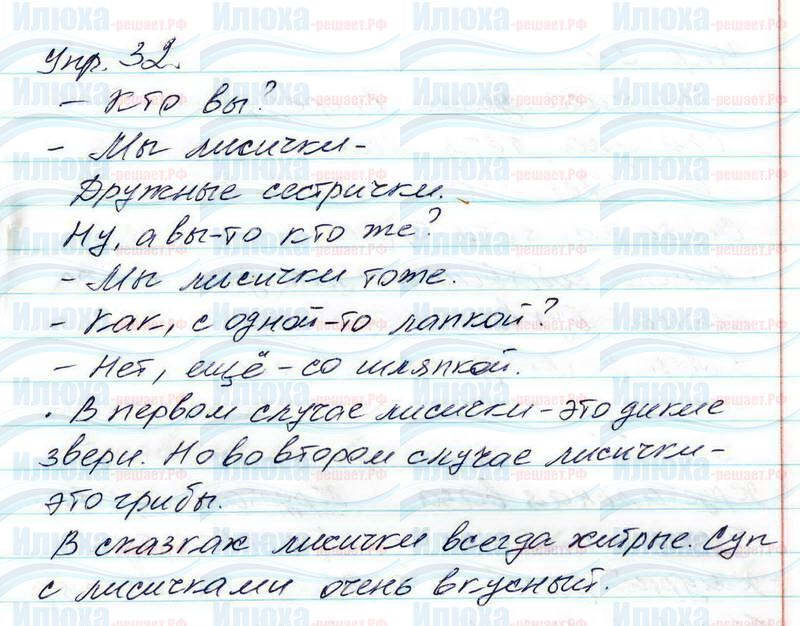 Упр. 32.
- Кто вы?
- Мы лисички -
Дружные сестрички.
Ну, а вы-то кто же?
- Мы лисички тоже.
- Как, с одной-то лапкой?
- Нет, ещё - со шляпкой.
. В первом случае лисички - это дикие
звери. Но во втором случае лисички -
это грибы.
В сказках лисички всегда хитрые. Суп
с лисичками очень вкусный.